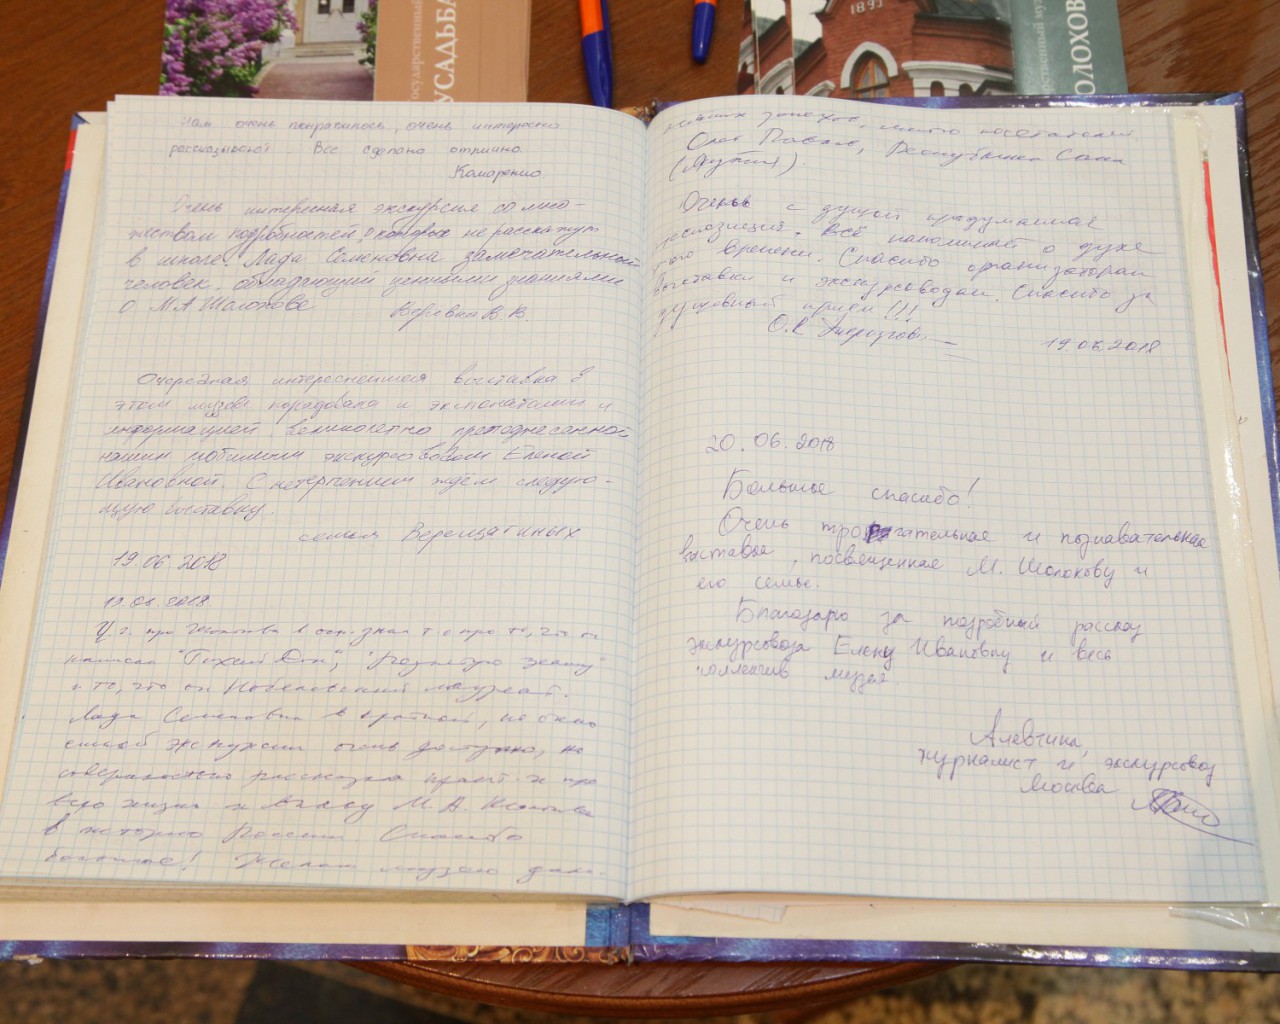 государственный
УСАДЬБА
1895
ственный муз
ОЛОХОВ
Нам очень понравилось, очень интересно
рассказывают. Все сделано отлично.
Очень интересная экскурсия со мно-
жеством подробностей, о которых не расскажут
в школе. Лада Семеновна замечательный
человек, обладающий ценными знаниями
о М.А Шолохове. Веревка В.В.
Очередная интереснейшая выставка в
этом музее порадовала и экспонатами и
информацией, великолепно преподнесенной
нашим любимым экскурсоводом Еленой
Ивановной. С нетерпением ждём следую-
щую выставку.
семья Верещагиных
19.06.2018
19.06.2018.
про то, что он
написал "Тихий Дон",
и то, что он Нобелевский лауреат.
Лада Семеновна в краткой, но
экскурсии очень доступно, но
рассказала
всю жизнь и М.А. Шолохова
в историю России. Спасибо
большое! Желаю музею даль-
нейших успехов, много посетителей.
Олег Павлов, Республика Саха
(Якутия).
Очень с душой придуманная
экспозиция. Всё напоминает о духе
того времени. Спасибо организаторам
выставки и экскурсоводам спасибо за
душевный прием!!!
О.К.
19.06.2018
20.06.2018
Большое спасибо!
Очень трогательная и познавательная
выставка, посвященная М. Шолохову и
его семье.
Благодарю за подробный рассказ
экскурсовода Елену Ивановну и весь
коллектив музея.
Алевтина,
журналист и экскурсовод
Москва